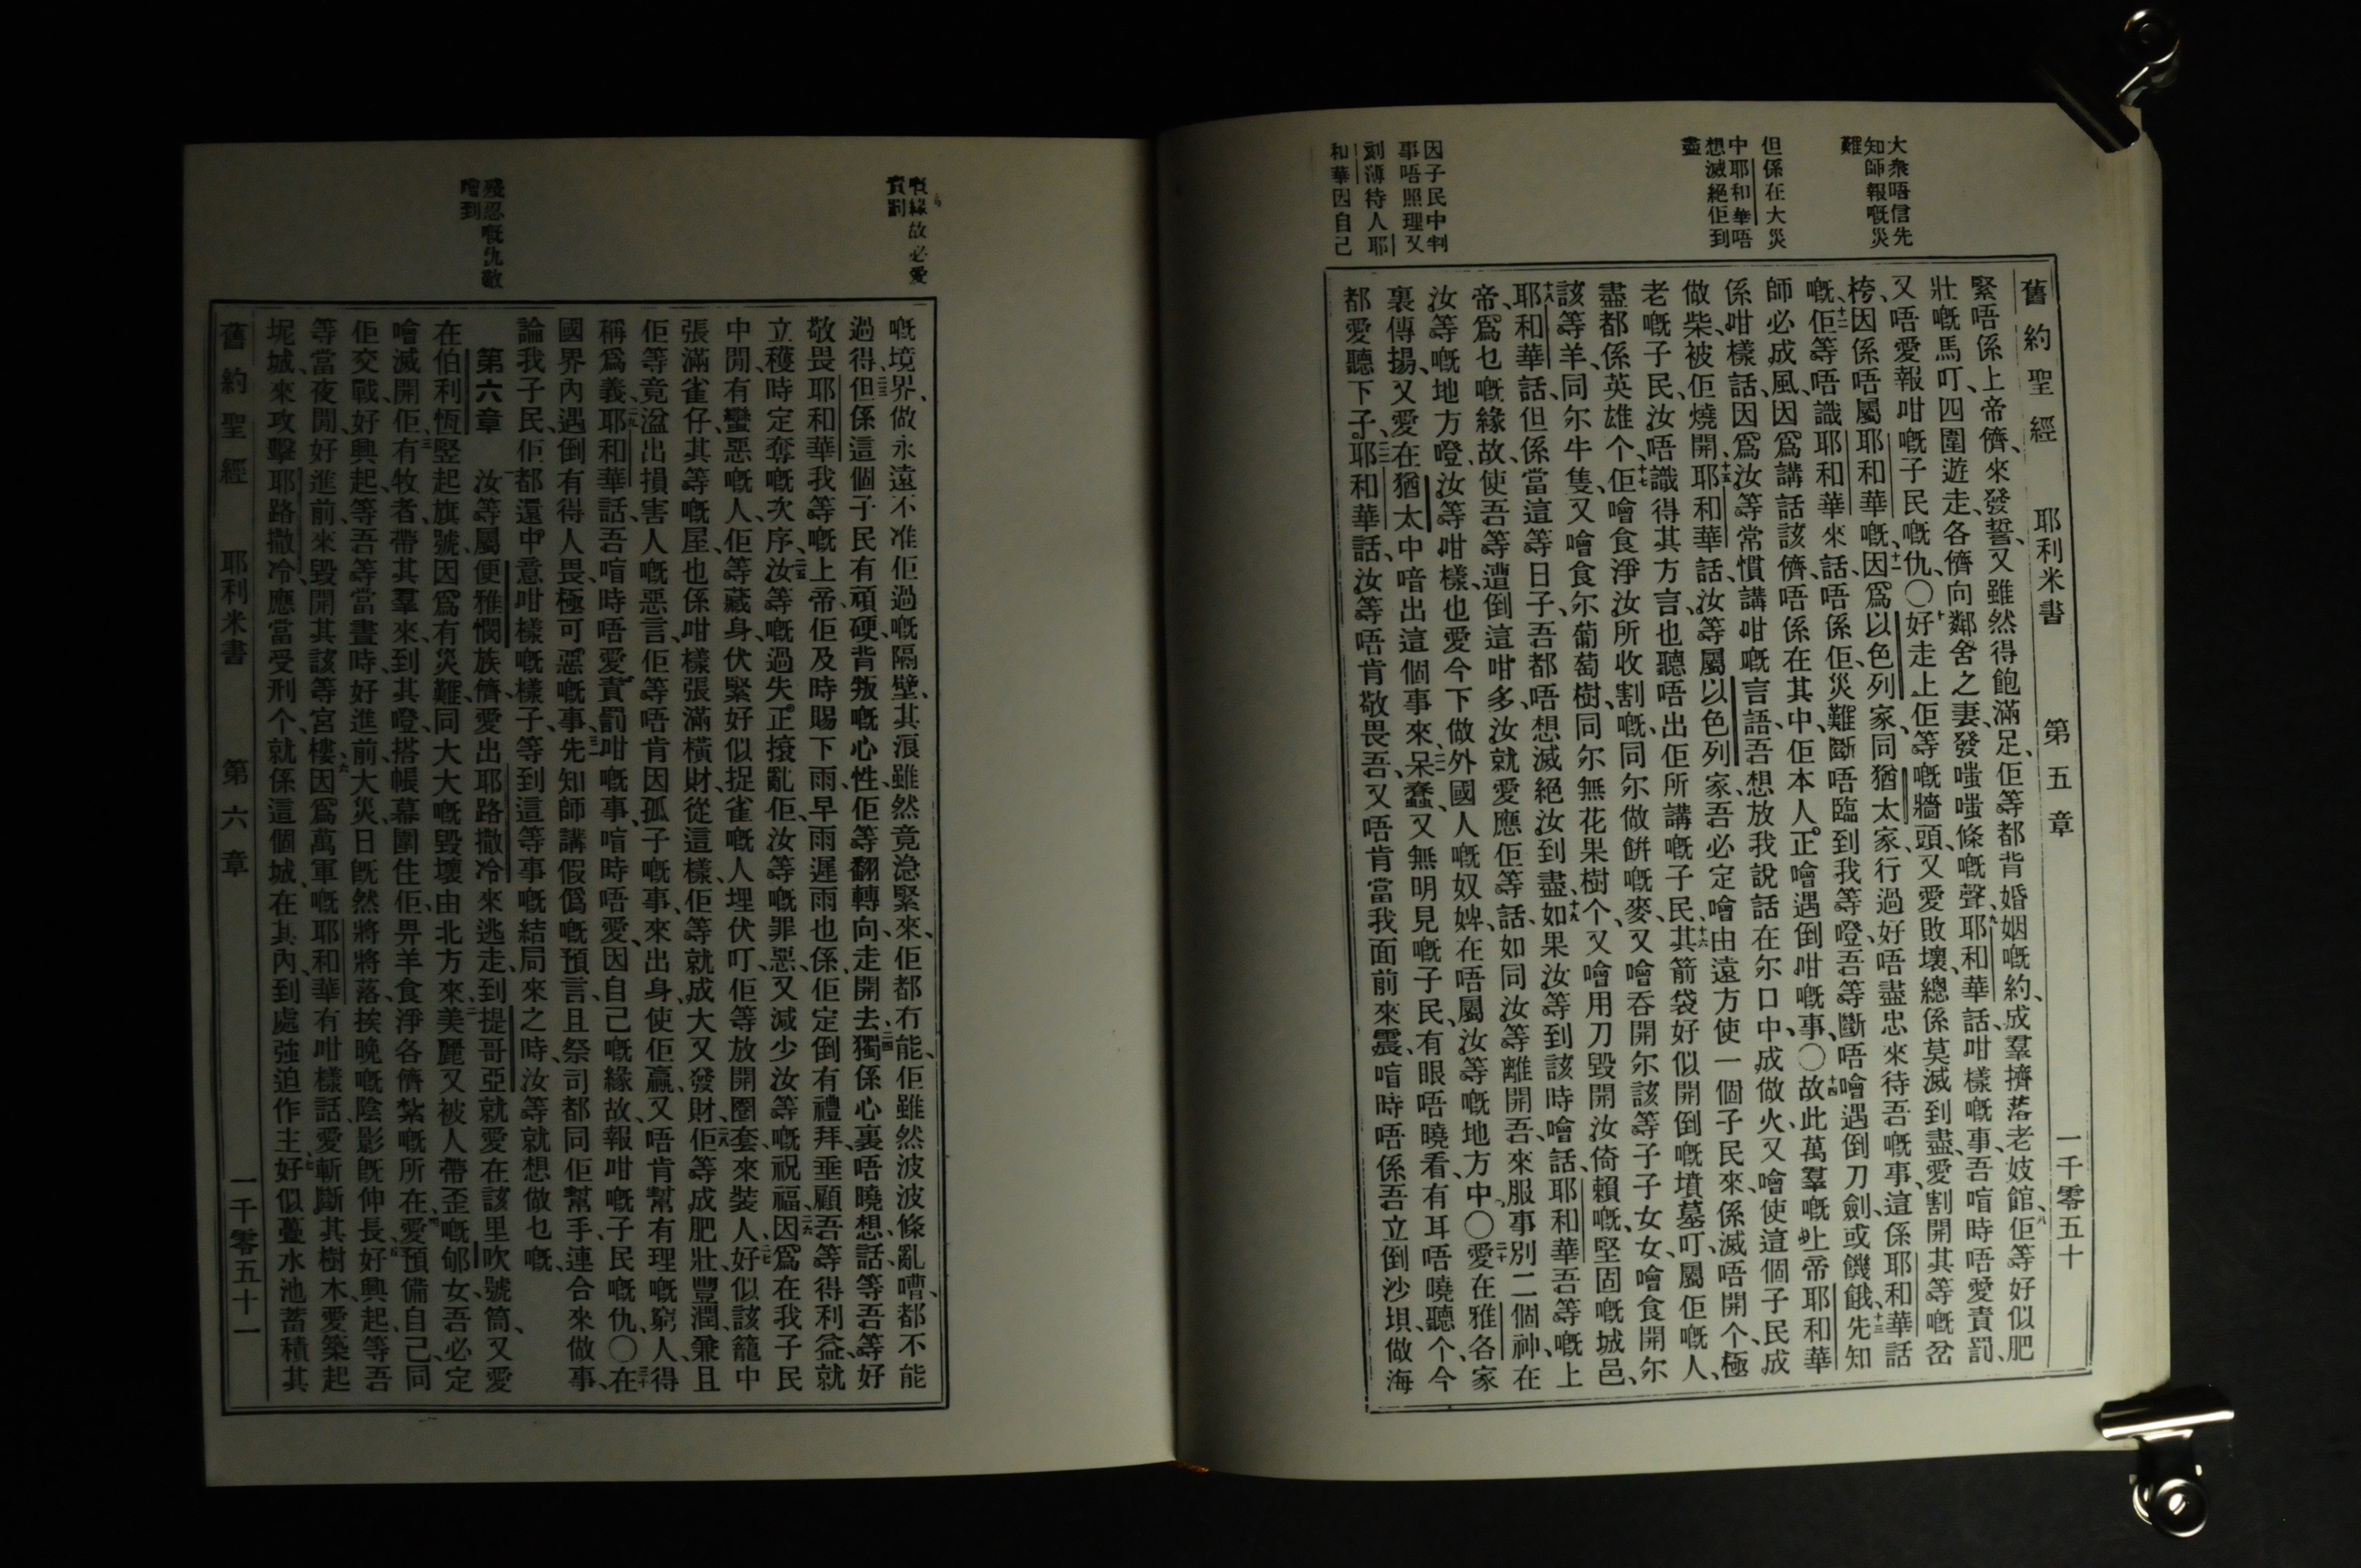 大衆唔信先
知師報嘅災
難
但係在大災
中耶和華唔
想滅絕佢到
盡
因子民中判
事唔照理又
刻薄待人耶
和華因自己
舊約聖經 耶利米書 第五章 一千零五十
緊吾係上帝儕、來發誓、又雖然得飽滿足、佢等都背婚姻嘅約、成羣擠落老妓館、八佢等好似肥
壯嘅馬叮、四圍遊走、各儕向鄰舍之妻、發嗤嗤條嘅聲、九耶和華話、咁樣嘅事、吾喑時唔愛責罰、
又唔愛報咁嘅子民嘅仇、〇十好走上佢等嘅牆頭、又愛敗壞、總係莫滅到盡、愛割開其等嘅岔
桍、因係唔屬耶和華嘅、十一因爲以色列家、同猶太家行過好唔盡忠來待吾嘅事、這係耶和華話
嘅、十二佢等唔識耶和華、來話、唔係佢、災難斷唔臨到我等噔、吾等斷唔噲遇倒刀劍、或饑餓、十三先知
師必成風、因爲講話該儕、唔係在其中、佢本人正噲遇倒咁嘅事、〇十四故此萬羣嘅上帝耶和華
係咁樣話、因爲汝等常慣講咁嘅言語、吾想放我說話在尔口中、成做火、又噲使這個子民成
做柴、被佢燒開、十五耶和華話、汝等屬以色列家、吾必定噲由遠方使一個子民來、係滅唔開个、極
老嘅子民、汝唔識得其方言、也聽唔出佢所講嘅子民、十六其箭袋好似開倒嘅墳墓叮、屬佢嘅人、
盡都係英雄个、十七佢噲食淨汝所收割嘅、同尔做餅嘅麥、又噲吞開尔該等子子女女、噲食開尔
該等羊、同尔牛隻、又噲食尔葡萄樹、同尔無花果樹个、又噲用刀毀開汝倚賴嘅、堅固嘅城邑、
十八耶和華話、但係當這等日子、吾都唔想滅絕汝到盡、十九如果汝等到該時噲話、耶和華吾等嘅上
帝、爲乜嘅緣故、使吾等遭倒這咁多、汝就愛應佢等話、如同汝等離開吾、來服事別二個神、在
汝等嘅地方噔、汝等咁樣也愛今下做外國人嘅奴婢、在唔屬汝等嘅地方中、〇二十愛在雅各家
裏傳揚、又愛在猶太中喑出這個事來、呆蠢、又無明見嘅子民、有眼唔曉看、有耳唔曉聽个、今
都愛聽下子、耶和華話、汝等唔肯敬畏吾、又唔肯當我面前來震、喑時唔係吾立倒沙垻、做海
嘅緣故必愛
責罰
殘忍嘅仇敵
噲到
嘅境界、做永遠不准佢過嘅隔壁、其浪雖然竟急緊來、佢都冇能、佢雖然波波條亂嘈、都不能
過得、但係這個子民有頑硬背叛嘅心性、佢等翻轉向走開去、獨係心裏唔曉想話、等吾等好
敬畏耶和華我等嘅上帝、佢及時賜下雨、早雨遲雨也係、佢定倒有禮拜垂顧吾等得利益、就
立穫時定奪嘅次序、汝等嘅過失、正攘亂佢、汝等嘅罪惡、又減少汝等嘅祝福、因爲在我子民
中間、有蠻惡嘅人、佢等藏身伏緊好似捉雀嘅人埋伏叮、佢等放開圈套、來裝人、好似該籠中
張滿雀仔、其等嘅屋、也係咁樣張滿橫財、從這樣、佢等就成大又發財、佢等成肥壯豐潤、兼且
佢等竟溢出損害人嘅惡言、佢等唔肯因孤子嘅事、來出身、使佢贏、又唔肯幫有理嘅窮人、得
稱爲義、耶和華話、吾喑時唔愛責罰咁嘅事、喑時唔愛因自己嘅緣故、報咁嘅子民嘅仇、〇在
國界內、遇倒有得人畏、極可惡嘅事、先知師講假僞嘅預言、且祭司都同佢幫手、連合來做事、
論我子民、佢都還中意咁樣嘅樣子、等到這等事嘅結局來之時、汝等就想做乜嘅、
第六章 汝等屬便雅憫族儕、愛出耶路撒冷來逃走、到提哥亞就愛在該里吹號筒、又愛
在伯利恆竪起旗號、因爲有災難、同大大嘅毀壞由北方來、美麗又被人帶歪嘅郇女、吾必定
噲滅開佢、有牧者、帶其羣來、到其噔、搭帳幕圍住佢、畀羊食淨各儕紮嘅所在、愛預備自己、同
佢交戰、好興起、等吾等當晝時、好進前、大災、日旣然將將落、挨晚嘅陰影旣伸長、好興起、等吾
等當夜間、好進前來、毀開其該等宮樓、因爲萬軍嘅耶和華有咁樣話、愛斬斷其樹木、愛築起
坭城、來攻擊耶路撒冷、應當受刑个、就係這個城、在其內、到處強迫作主、好似蘴水池蓄積其
舊約聖經 耶利米書 第六章 一千零五十一